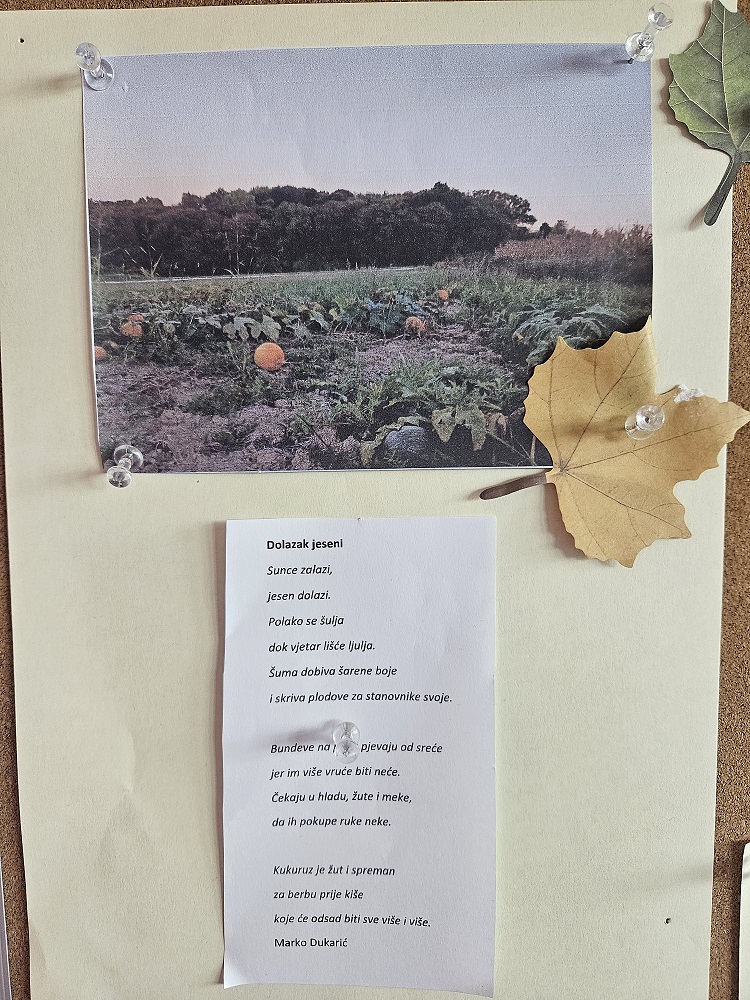 Dolazak jeseni
Sunce zalazi,
jesen dolazi.
Polako se šulja
dok vjetar lišće ljulja.
Šuma dobiva šarene boje
i skriva plodove za stanovnike svoje.
Bundeve na pjevaju od sreće
jer im više vruće biti neće.
Čekaju u hladu, žute i meke,
da ih pokupe ruke neke.
Kukuruz je žut i spreman
za berbu prije kiše
koje će odsad biti sve više i više.
Marko Dukarić